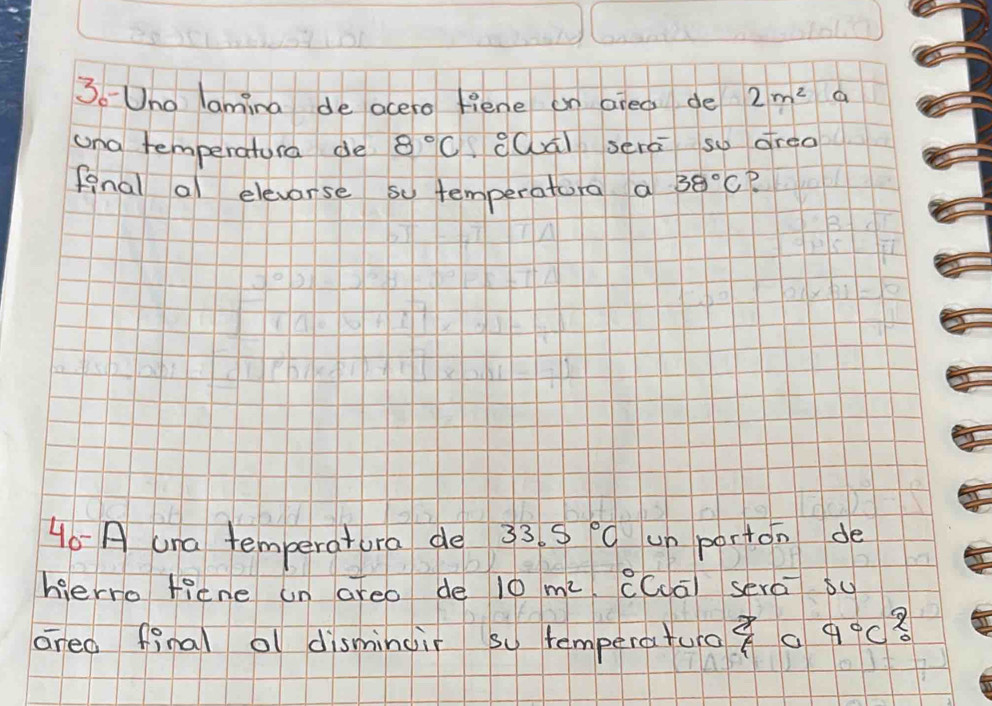 3.- Una lamina de acero tiene un área de 2m² a
una temperatura de 8°C. ¿Cuál será su área
final al elevarse su temperatura a 38°C?
4.- A una temperatura de 33.5 °C un portón de
hierro tiene un área de 10 m². ¿Cuál será su
área final al disminuir su temperatura a 9°C?